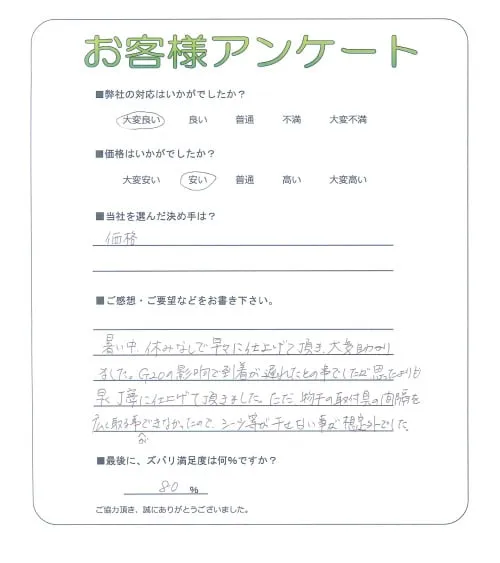 お客様アンケート
■弊社の対応はいかがでしたか？
大変良い 良い 普通 不満 大変不満
■価格はいかがでしたか？
大変安い 安い 普通 高い 大変高い
■当社を選んだ決め手は？
価格
■ご感想・ご要望などをお書き下さい。
暑い中、休みなしで早々に仕上げて頂き、大変助かり
ました。G20の影響で到着が遅れたとの事でしたが思ったよりも
早く丁寧に仕上げて頂きました。ただ、物干の取付具の間隔を
広く取る事ができなかったので、シーツ等が干せない事が想定外でした
■最後に、ズバリ満足度は何％ですか？
80 %
ご協力頂き、誠にありがとうございました。